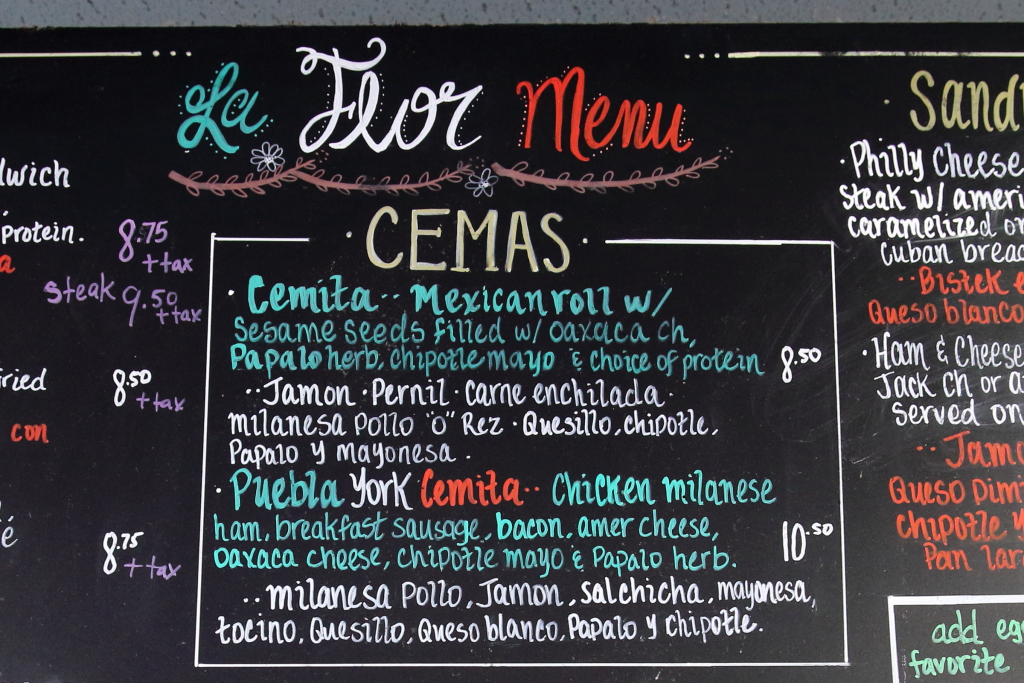 La Flor Menu
CEMAS
· Cemita ·· Mexican roll w/
Sesame Seeds filled w/ oaxaca ch,
Papalo herb, chipotle mayo & choice of protein 8.50
·· Jamon · Pernil · carne enchilada ·
milanesa Pollo "o" Rez · Quesillo, chipotle,
Papalo y mayonesa .
· Puebla York Cemita ·· Chicken milanese
ham, breakfast sausage, bacon, amer cheese,
oaxaca cheese, chipotle mayo & Papalo herb. 10.50
·· milanesa Pollo, Jamon, salchicha, mayonesa,
tocino, Quesillo, Queso blanco, Papalo y chipotle.
protein. 8.75
+ tax
steak 9.50
+ tax
8.50
+ tax
con
8.75
+ tax
· Philly Cheese
steak w/
caramelized
Cuban
·· Bistek
Queso blanco
· Ham & Cheese
Jack ch or
served on
··
Queso
chipotle y
Pan
add
favorite